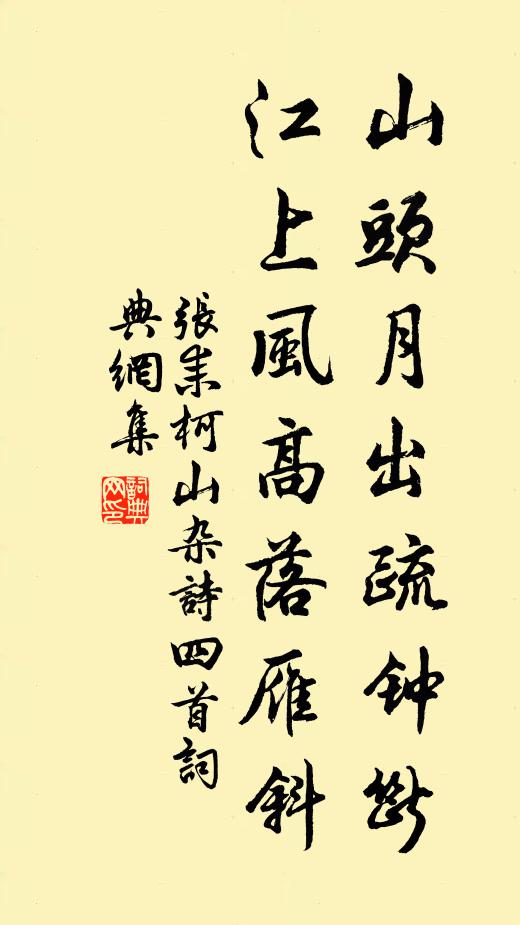 山頭月出疏钟斷
江上風高落雁斜
張耒柯山杂詩四首詞
典網集
詞典网印